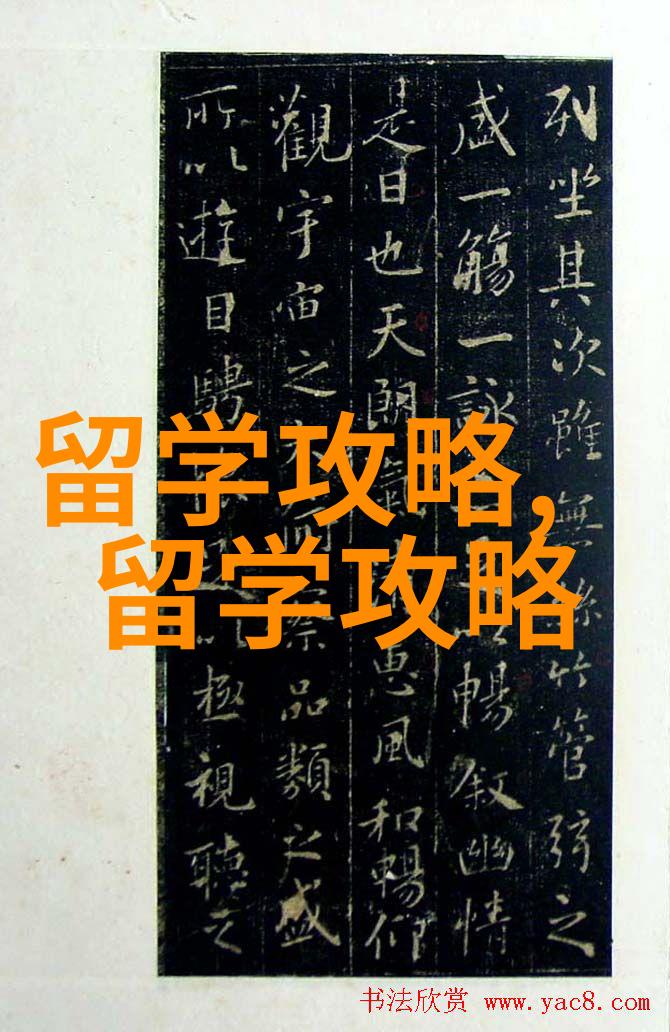 列坐其次雖無絲竹管弦之
盛一觴一詠暢叙幽情
是日也天朗氣惠風和暢仰
觀宇宙之察品類之盛
所以遊目騁以極視聽之
留学攻略,
留学攻略
书法欣赏 www.yac8.com